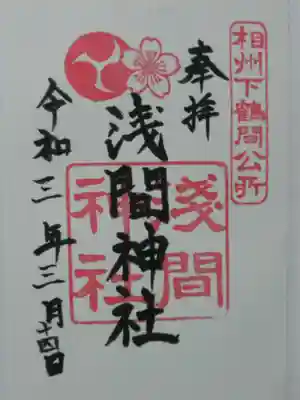 相州下鶴間公所
奉拝
浅間神社
淺間神社
令和三年三月十四日